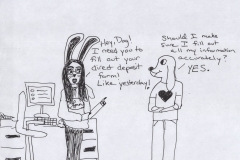 Hey, Dog!
I need you to
fill out your
direct deposit
form!
Like yesterday!
Should I make
sure I fill out
all my information
accurately?
YES.